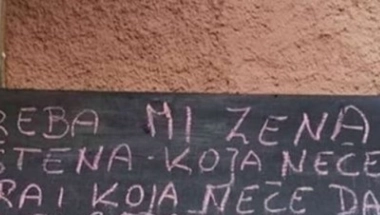 REBA MI ŽENA
ŠTENA - KOJA NEĆE
RA I KOJA NEĆE DA